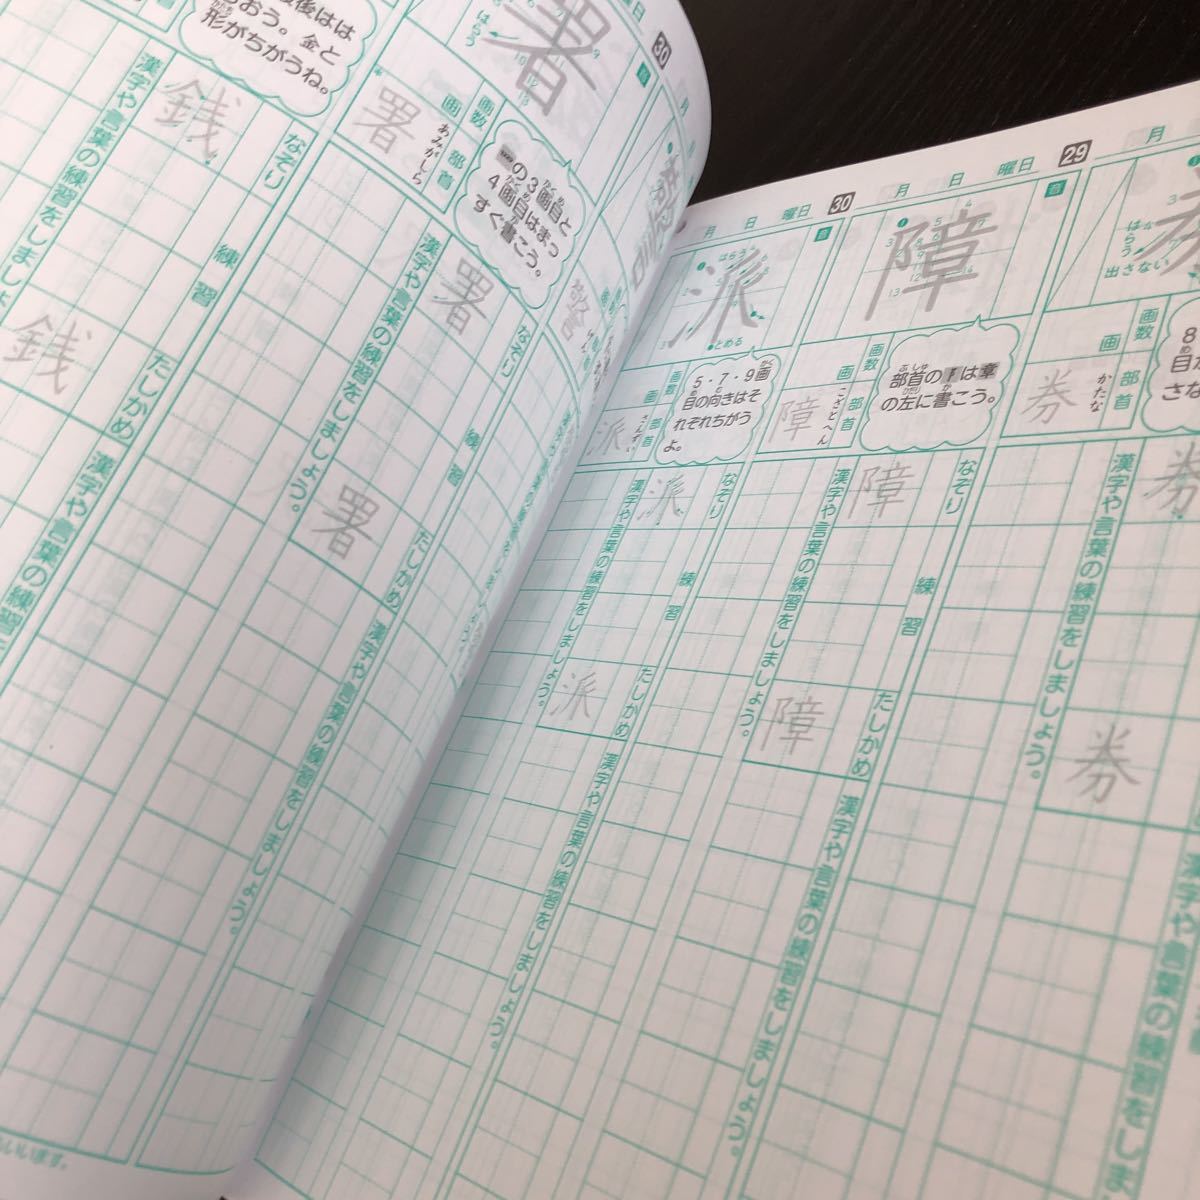 29
月
出さない
はらう
券
画数
部首
画
かたな
券
漢字や言葉の練習をしましょう。
券
漢字や言葉の練習をしま
30
月
日
曜日
音
障
画数
部首
画
こざとへん
障
部首の阝は章
の左に書こう。
なぞり
練習
たしかめ
障
漢字や言葉の練習をしましょう。
障
漢字や言葉の練習をしましょう。
月
日
曜日
音
派
はらう
とめる
画数
部首
画
さんずい
派
5・7・9画
目の向きはそ
れぞれちがう
よ。
なぞり
練習
たしかめ
派
漢字や言葉の練習をしましょう。
派
漢字や言葉の練習をしましょう。
30
月
音
署
はらう
画数
部首
画
あみがしら
署
罒の3画目と
4画目はまっ
すぐ書こう。
なぞり
練習
たしかめ
署
漢字や言葉の練習をしましょう。
署
漢字や言葉の練習をしましょう。
後はは
らおう。金と
形がちがうね。
なぞり
練習
たしかめ
銭
漢字や言葉の練習をしましょ
銭
漢字や言葉の練習を